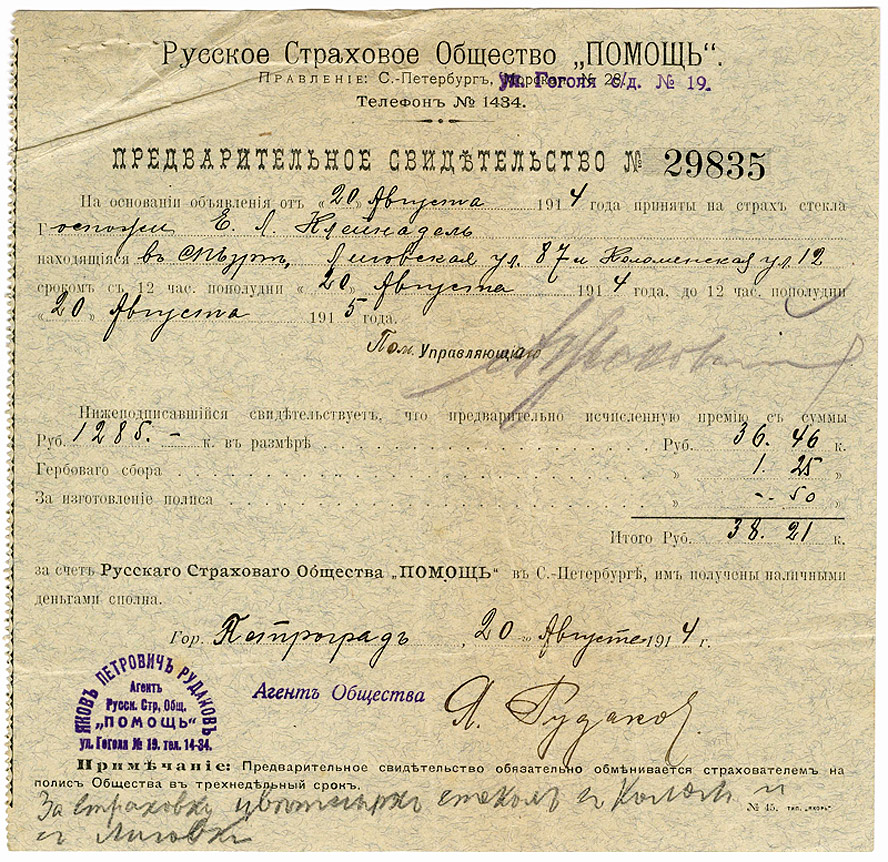 Русское Страховое Общество „ПОМОЩЬ“.
Правленіе: С.-Петербургъ, Морская № 28. ул. Гоголя с/д. № 19.
Телефонъ № 1434.
ПРЕДВАРИТЕЛЬНОЕ СВИДѢТЕЛЬСТВО № 29835
На основаніи объявленія отъ «20» Августа 1914 года приняты на страхъ стекла
Госпожи Е. Л. Клейнадель
находящіяся въ СПБургѣ, Лиговская ул. 87 и Коломенская ул. 12
срокомъ съ 12 час. пополудни «20» Августа 1914 года, до 12 час. пополудни
«20» Августа 1915 года.
Пом. Управляющаго
Нижеподписавшійся свидѣтельствуетъ, что предварительно исчисленную премію съ суммы
Руб. 1285. - к. въ размѣрѣ Руб. 36. 46 к.
Гербоваго сбора » 1. 25 »
За изготовленіе полиса » -. 50 »
Итого Руб. 38. 21 к.
за счетъ Русскаго Страховаго Общества „ПОМОЩЬ“ въ С.-Петербургѣ, имъ получены наличными
деньгами сполна.
Гор. Петроградъ, 20-го Августа 1914 г.
ЯКОВЪ ПЕТРОВИЧЪ РУДАКОВЪ
Агентъ
Русск. Стр, Общ.
„ПОМОЩЬ“
ул. Гоголя № 19. тел. 14-34.
Агентъ Общества Я. Рудаков
Примѣчаніе: Предварительное свидѣтельство обязательно обмѣнивается страхователемъ на
полисъ Общества въ трехнедѣльный срокъ.
№ 45. тип. „Якорь“
За страховку стеколъ с Колом и
с Лиговки